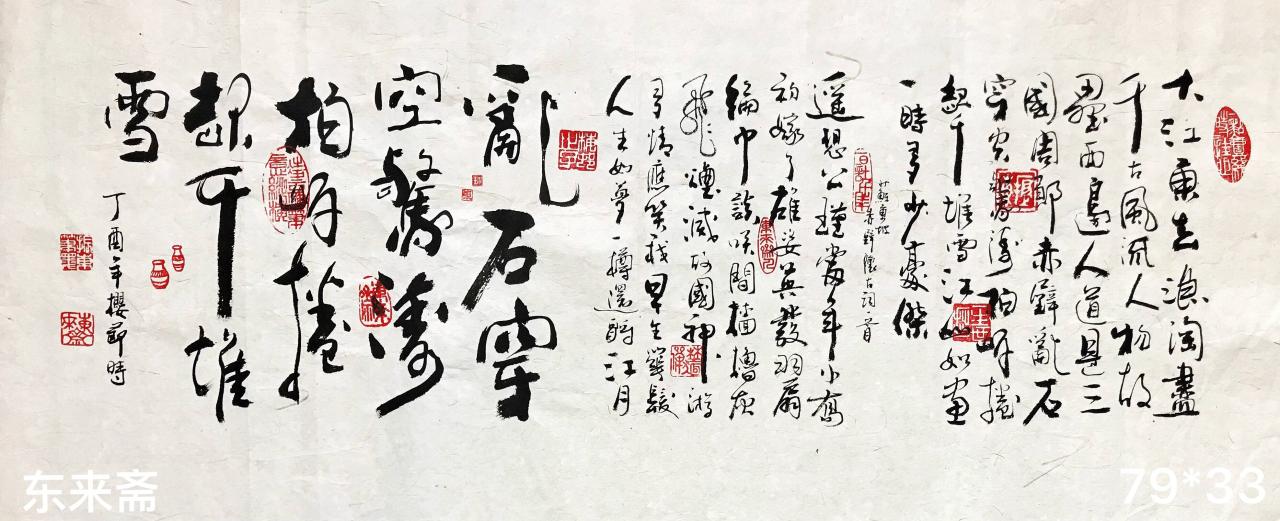 大江東去浪淘盡
千古風流人物故
壘西邊人道是三
國周郎赤壁亂石
穿空驚濤拍岸捲
起千堆雪江山如畫
一時多少豪傑
蘇東坡
赤壁懷古詞一首
遥想公瑾當年小喬
初嫁了雄姿英發羽扇
綸巾談咲間檣櫓灰
飛煙滅故國神游
多情應笑我早生華髮
人生如夢一樽還酹江月
亂石穿
空驚濤
拍岸捲
起千堆
雪
丁酉年櫻節時
东来斋
79*33